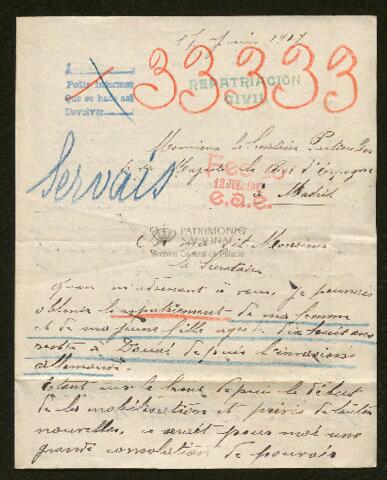 17 Juin 1917
33333
A
Pedir informes
Que es hada asi
Devolver
REPATRIACIÓN
CIVIL
Monsieur le Secrétaire Particulier
de sa Majesté le Roi d'Espagne
à Madrid
Servais
12 JUL. 1917
e.a.e.
PATRIMONIO
NACIONAL
Archivo General de Palacio
Monsieur
le Secrétaire
en m'adressant à vous, je pourrais
obtenir le rapatriement de ma femme
et de ma jeune fille agée de dix huit ans
restée à Douai depuis l'invasion
allemande.
Etant sur le front depuis le début
de la mobilisation et privé de toutes
nouvelles, ce serait pour moi une
grande consolation de pouvoir